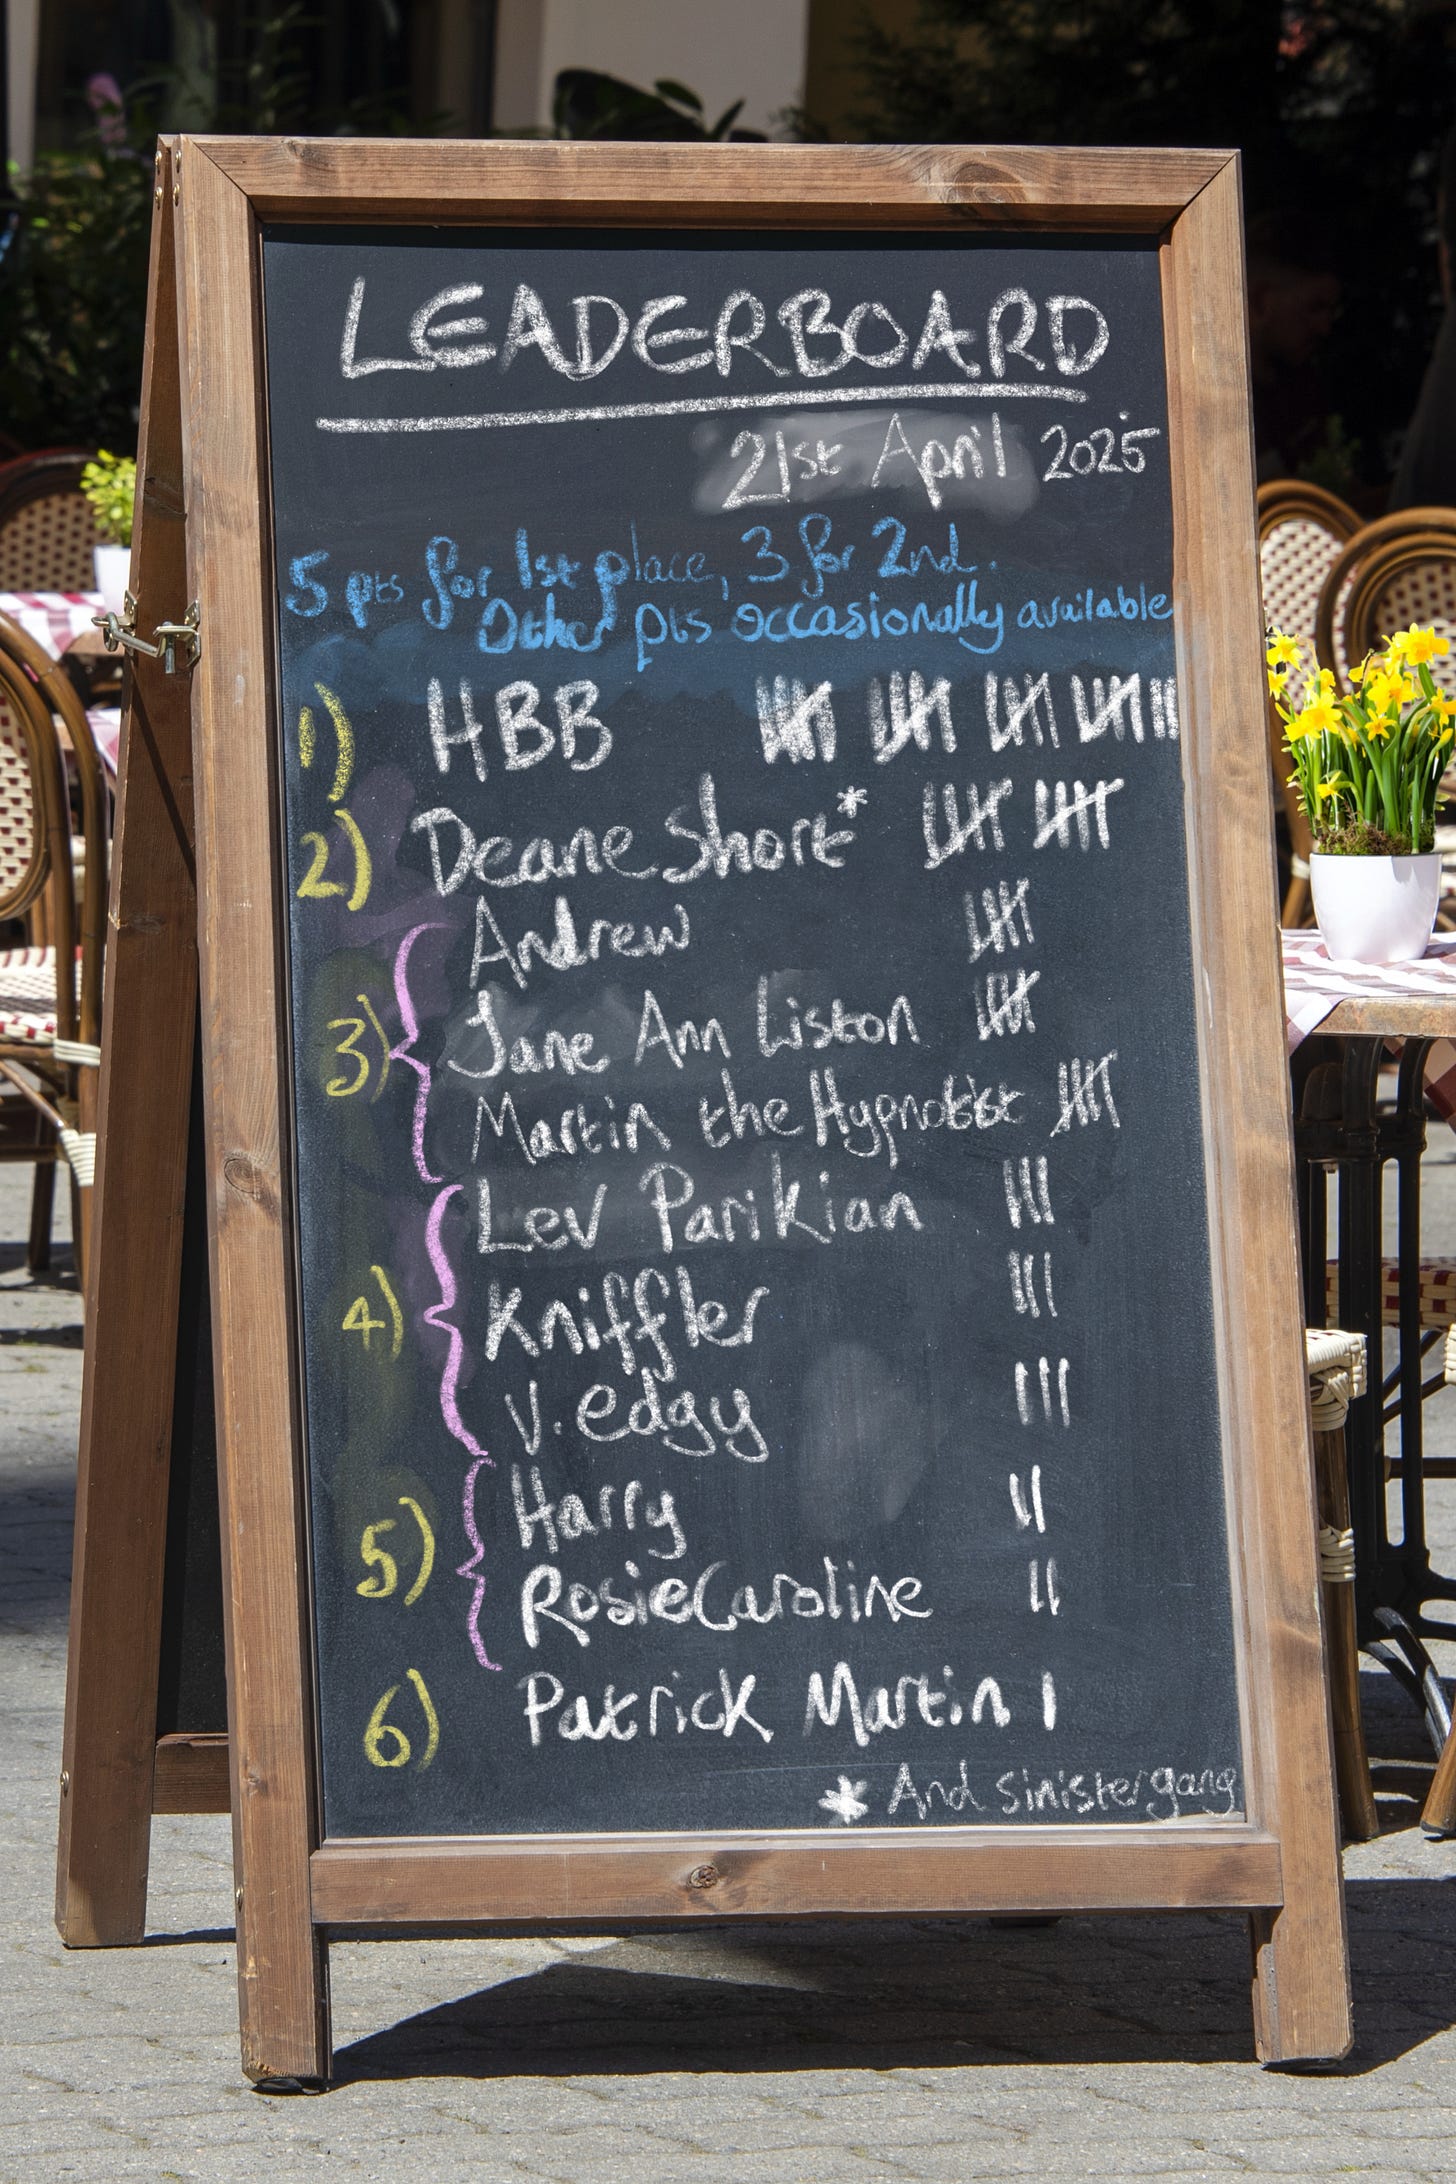 LEADERBOARD
21st April 2025
5 pts for 1st place, 3 for 2nd.
Other pts occasionally available
1) HBB
2) Deane Short*
Andrew
3) Jane Ann Liston
Martin the Hypnotist
Lev Parikian
4) Kniffler
V. edgy
Harry
5) RosieCaroline
6) Patrick Martin I
* And sinistergang